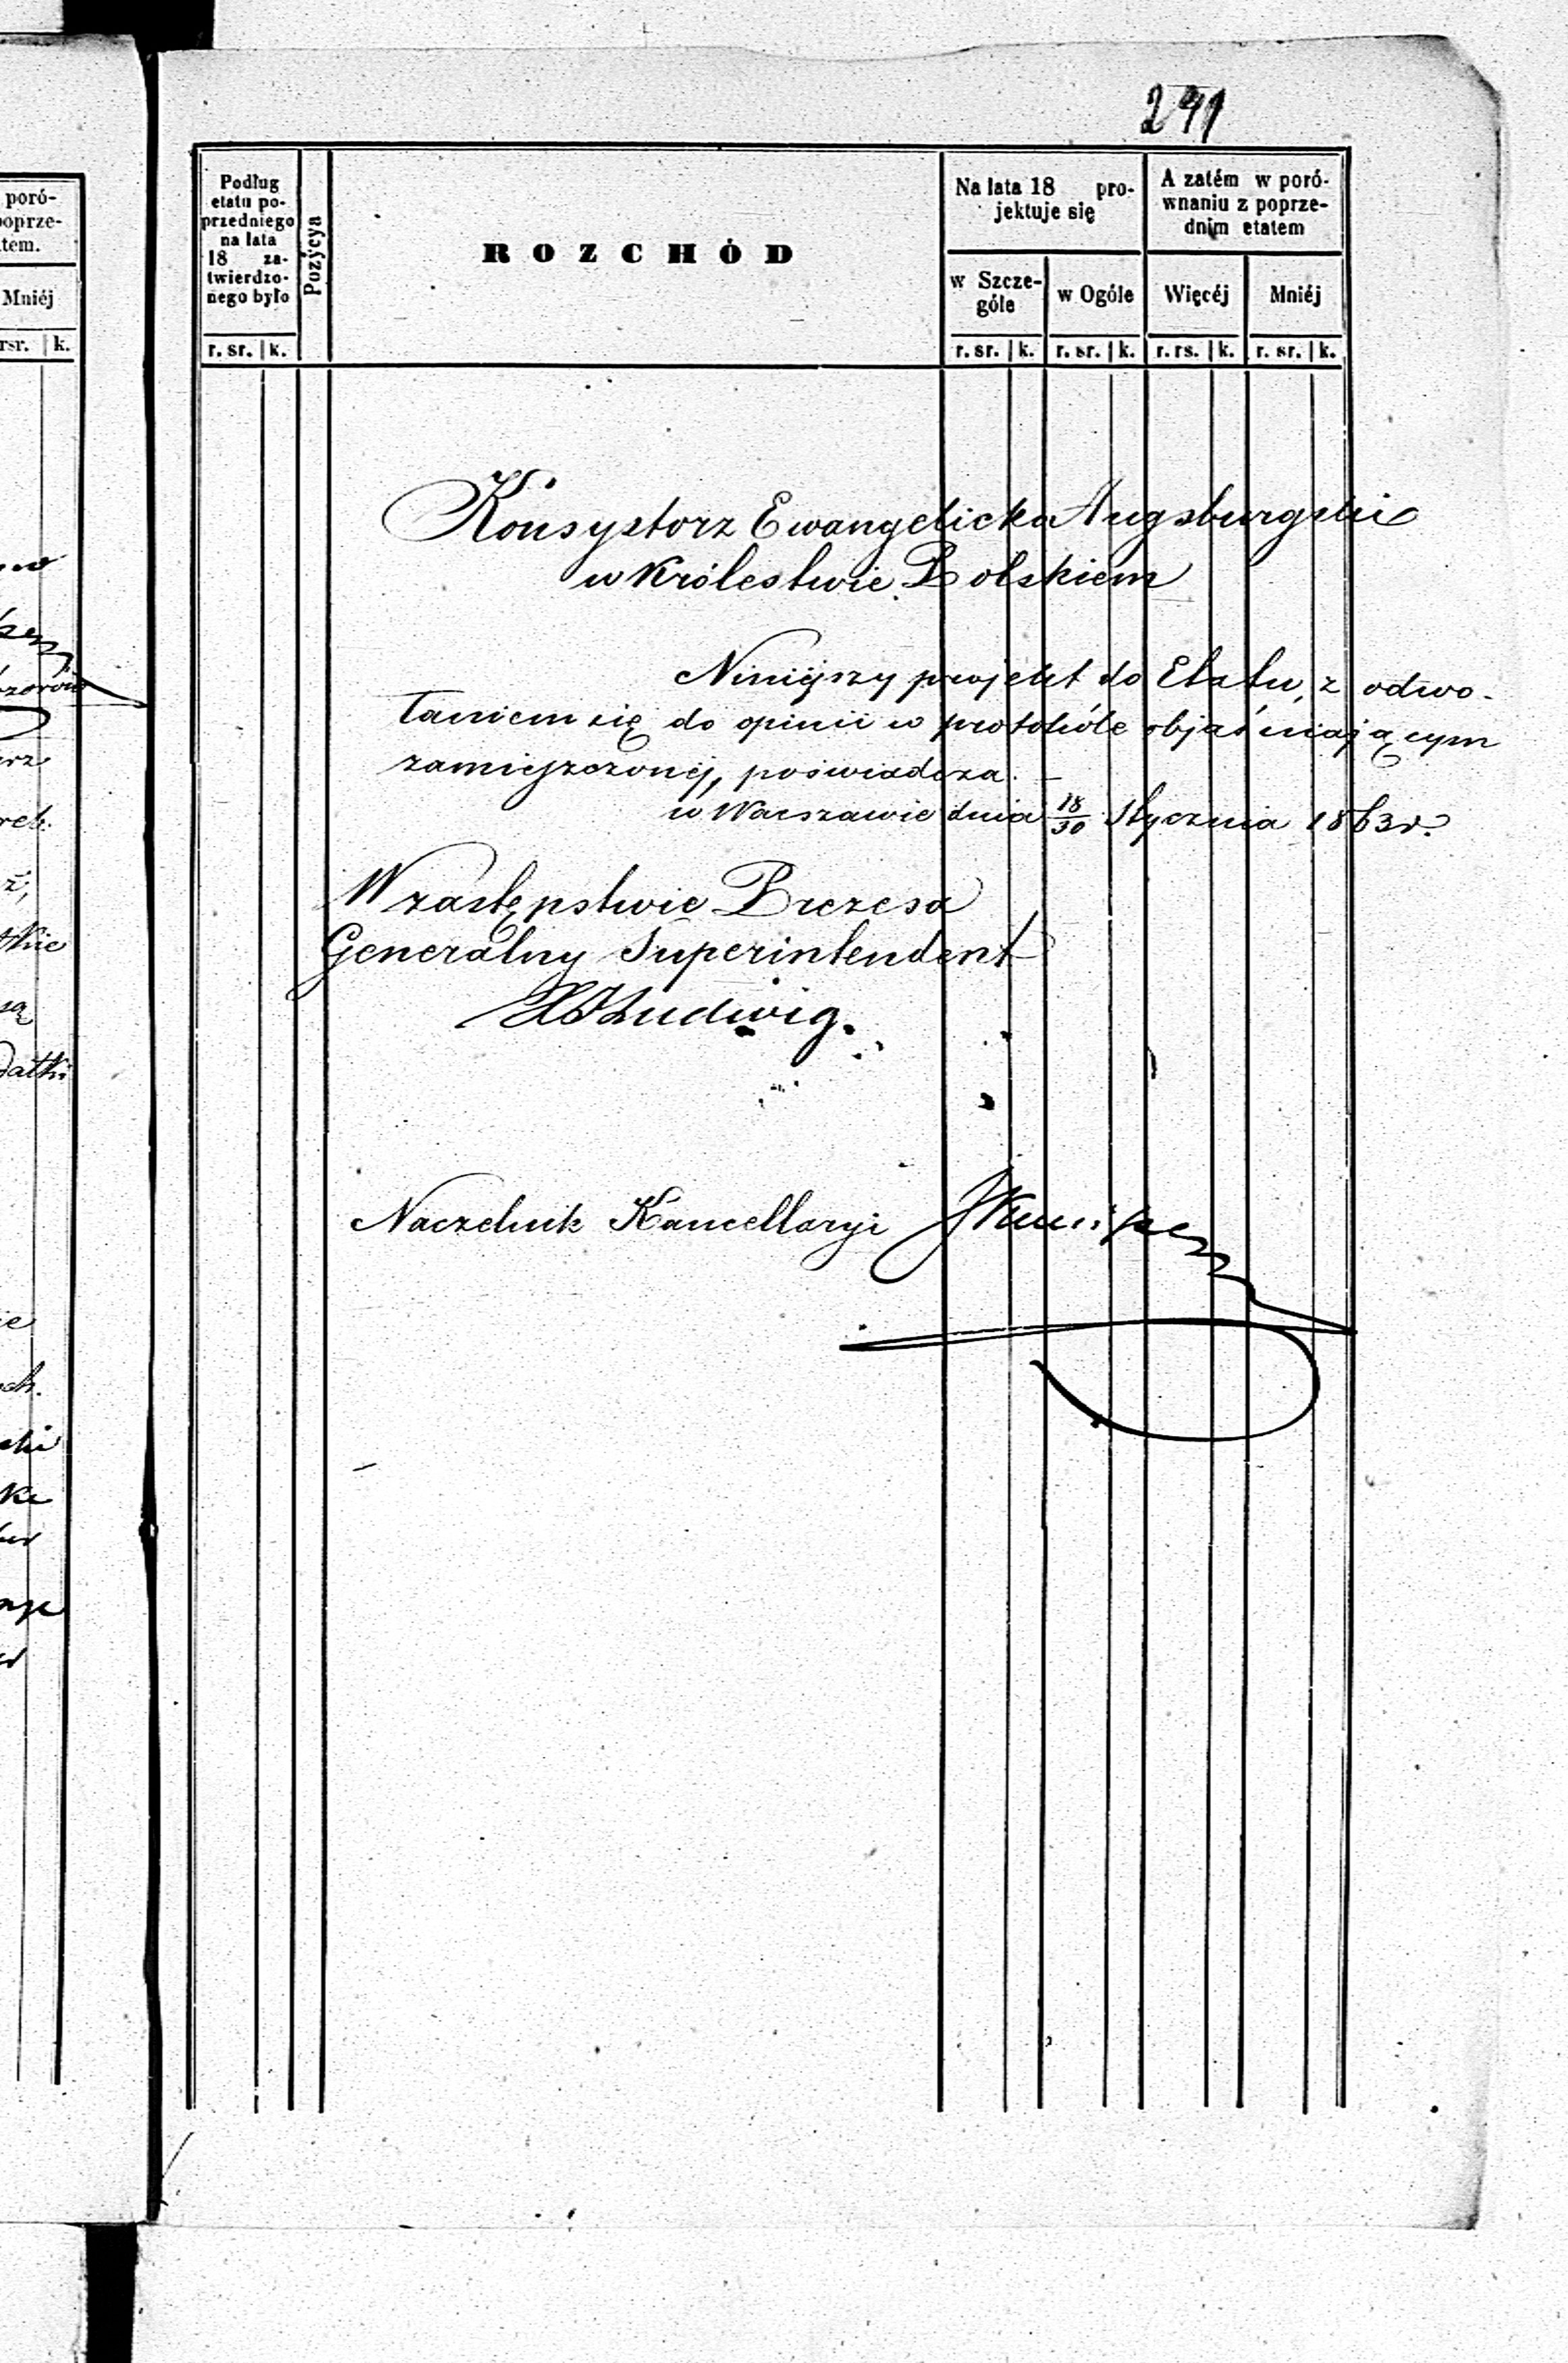 291
poró-
poprze-
tem.
Mniéj
rsr. k.
Podług
etatu po-
przedniego
na lata
18 za-
twierdzo-
nego było
r. sr. k.
Pozycya
ROZCHÓD
Na lata 18 pro-
jektuje się
w Szcze-
góle
r. sr. k.
w Ogóle
r. sr. k.
A zatém w poró-
wnaniu z poprze-
dnim etatem
Więcéj
r. rs. k.
Mniéj
r. sr. k.
Konsystorz Ewangelicko Augsburgski
w Królestwie Polskiem
Niniejszy projekt do Etatu, z odwo-
łaniem się do opinii w protokóle objaśniającym
zamieszczonéj, poświadcza. –
w Warszawie dnia 18/30 Stycznia 1863 r.
W zastępstwie Prezesa
Generalny Superintendent
Ludwig.
Naczelnik Kancellaryi